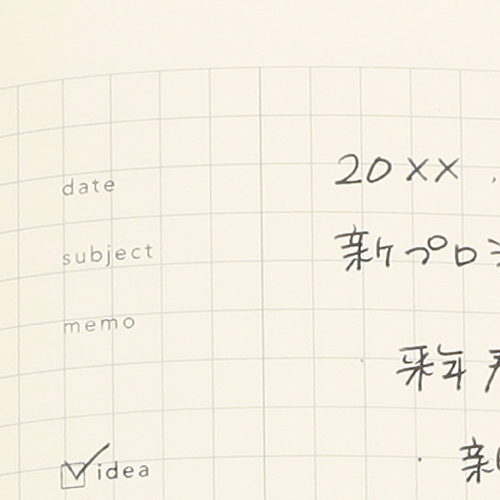 date 20XX.
subject 新プロ
memo
来年
✓ idea ・新